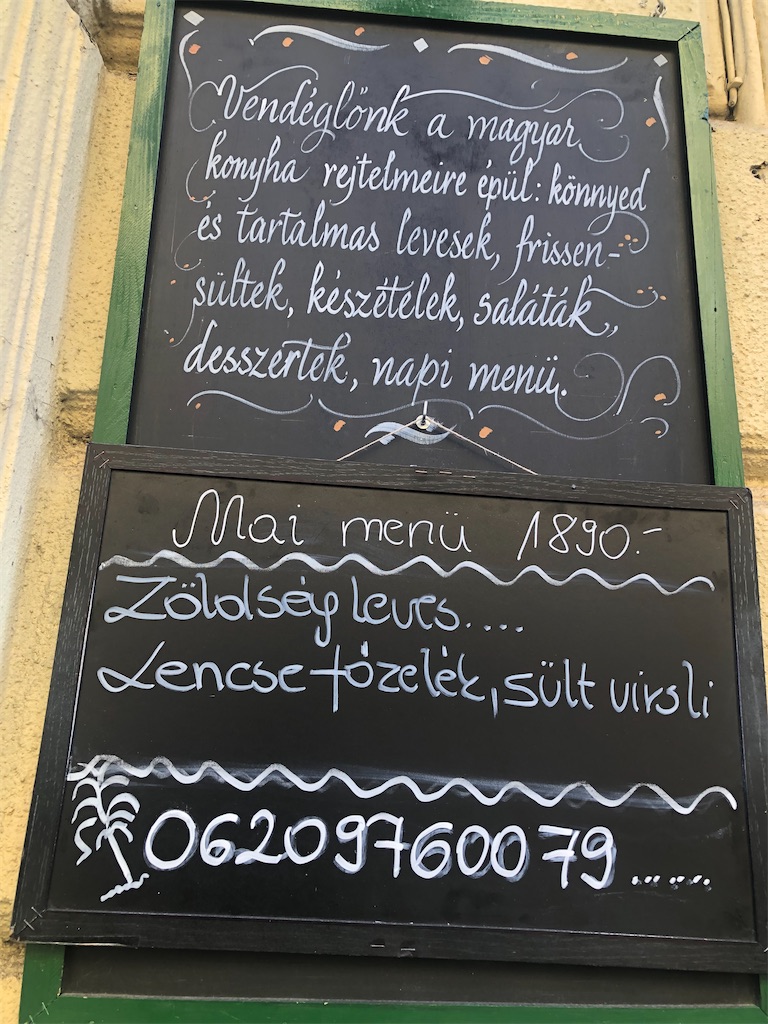 Vendéglőnk a magyar
konyha rejtelmeire épül: könnyed
és tartalmas levesek, frissen-
sültek, készételek, saláták,
desszertek, napi menü.
Mai menü 1890.-
Zöldség leves....
Lencse főzelék, sült virsli
06209760079......